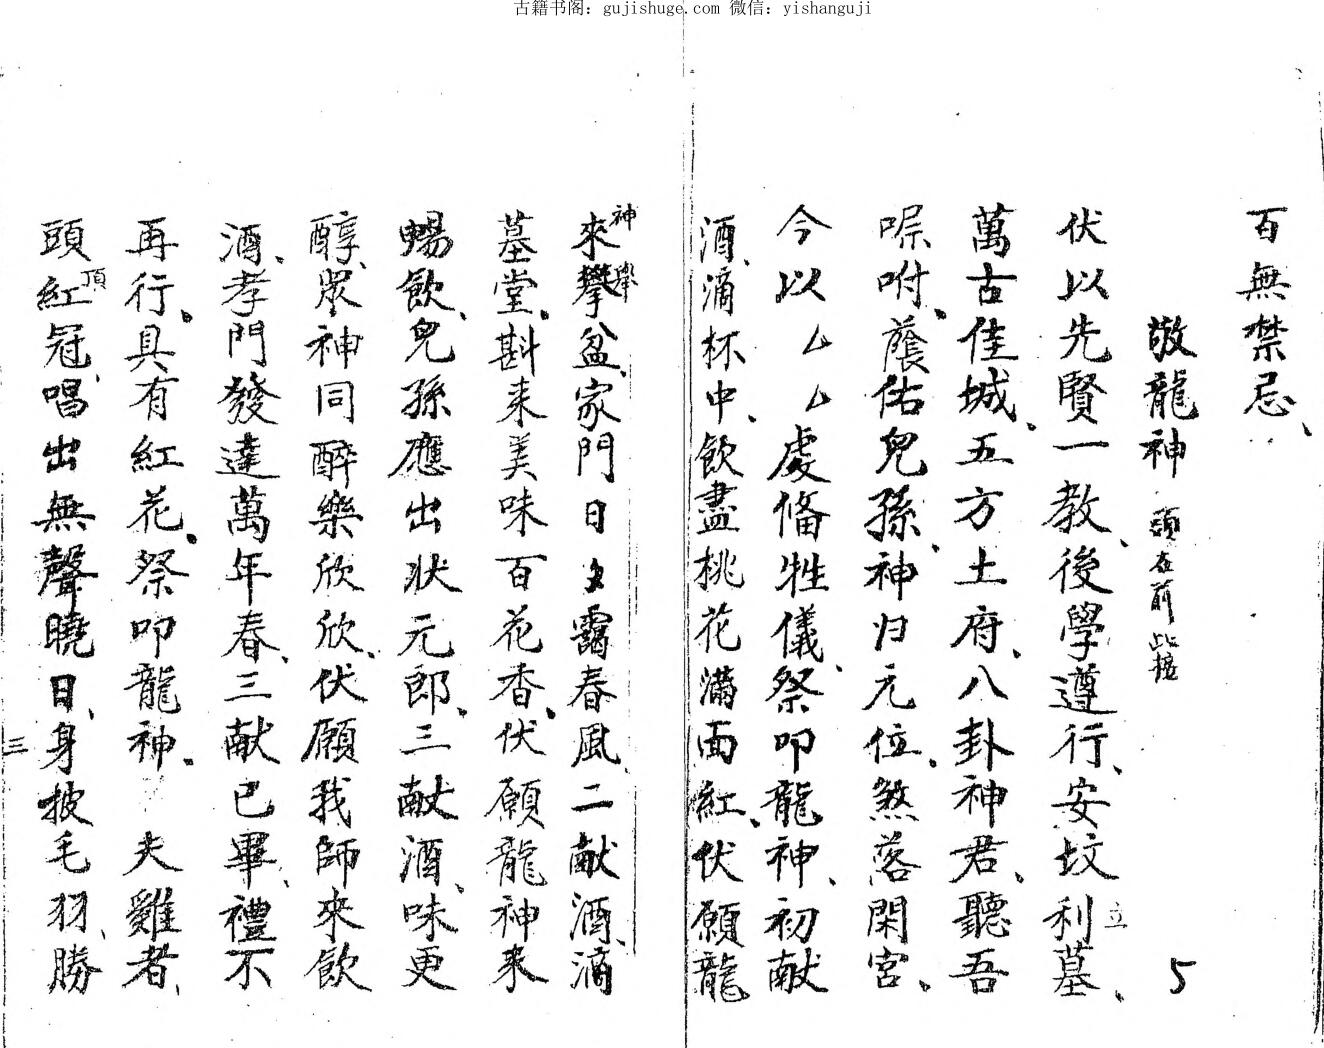 古籍书阁：gujishuge.com 微信：yishanguji
百無禁忌、
敬龍神 頭在前此接
5
伏以先賢一教、後學遵行、安坟利墓、
立
萬古佳城、五方土府、八卦神君、聽吾
呢咐、蔭佑兒孫、神归元位、煞落閑宮、
今以厶厶處偹牲儀、祭叩龍神、初献
酒、滴杯中、飲盡桃花滿面紅、伏願龍
神舉
來攀盆、家門日日靄春風、二献酒、滴
墓堂、斟来美味百花香、伏願龍神来
暢飲、兒孫應出状元郎、三献酒、味更
醇、眾神同醉樂欣欣、伏願我師來飲
酒、孝門發達萬年春、三献已畢、禮不
再行、具有紅花、祭叩龍神、夫雞者、
頂
頭紅冠、唱出無聲曉日、身披毛羽、勝
三